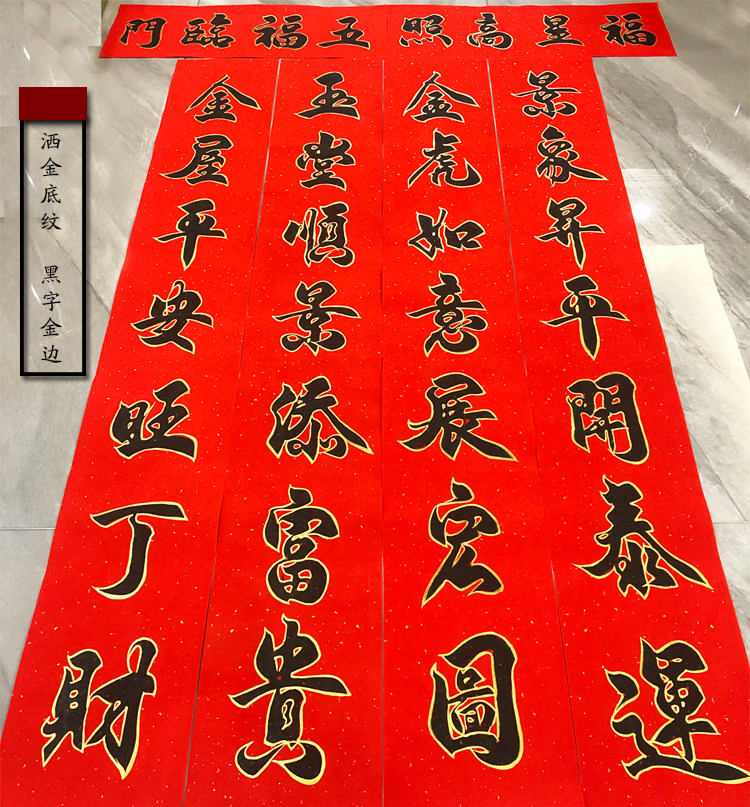 福星高照五福臨門
景象昇平開泰運
金虎如意展宏圖
玉堂順景添富貴
金屋平安旺丁財
洒金底纹 黑字金边